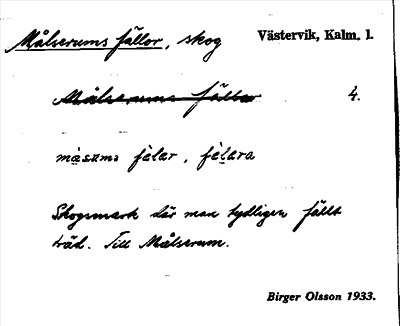 Målserums fällor, skog Västervik, Kalm. l.
Målserums fällor 4.
måsums fälar, fälara
Skogsmark där man tydligen fällt
träd. Till Målserum.
Birger Olsson 1933.